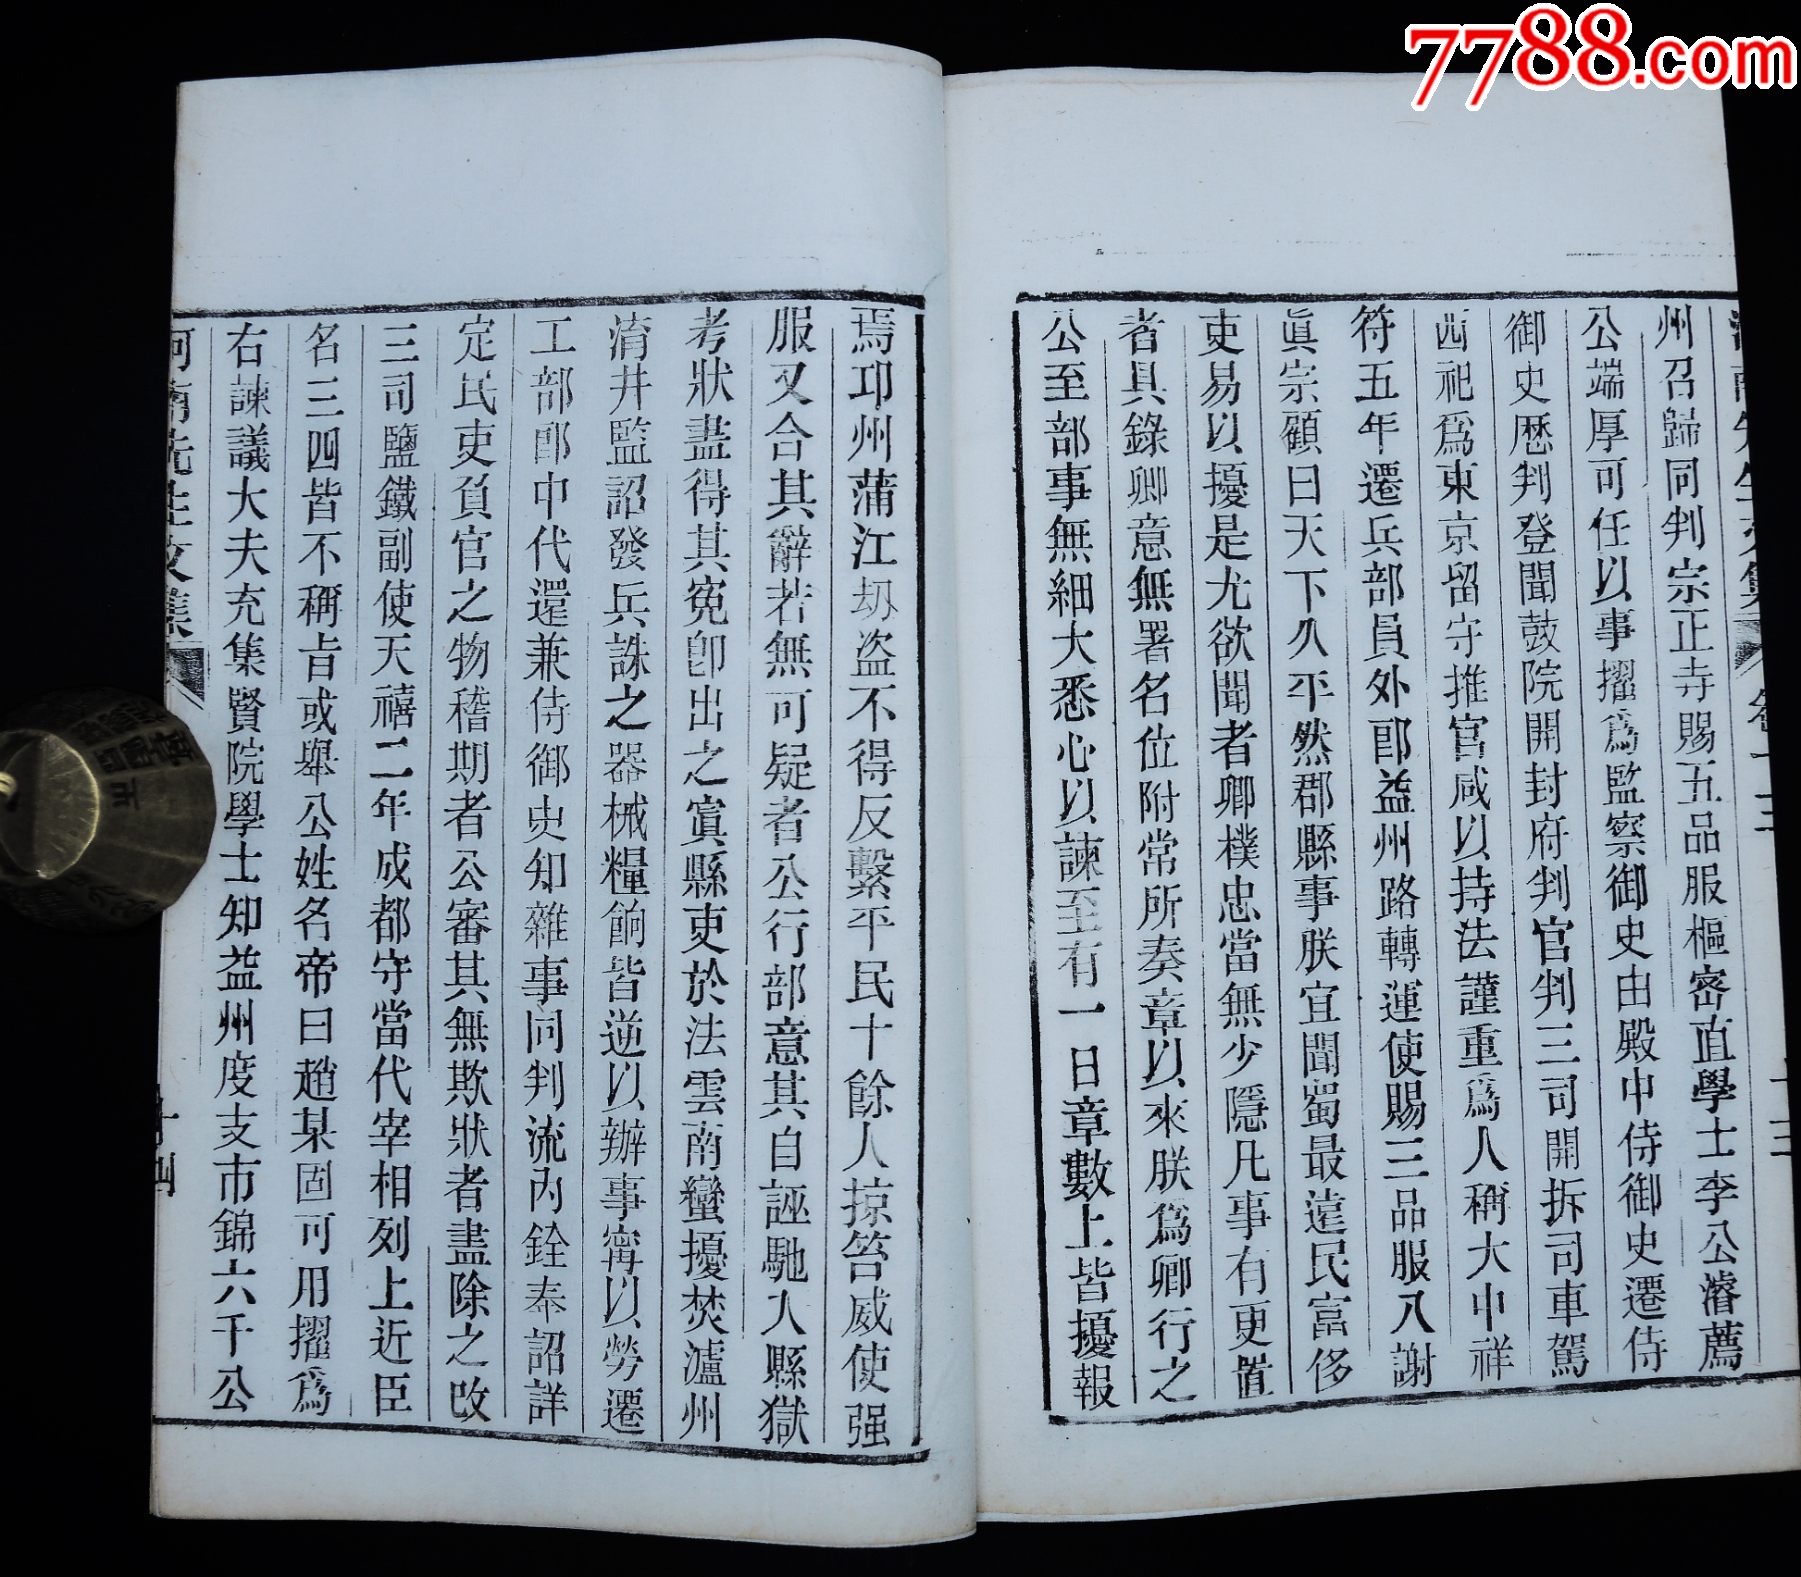 7788.com
州召歸同判宗正寺賜五品服樞密直學士李公濬薦
公端厚可任以事擢爲監察御史由殿中侍御史遷侍
御史歷判登聞鼓院開封府判官判三司開拆司車駕
西祀爲東京留守推官咸以持法謹重爲人稱大中祥
符五年遷兵部員外郎益州路轉運使賜三品服入謝
眞宗顧曰天下久平然郡縣事朕宜聞蜀最遠民富侈
吏易以擾是尤欲聞者卿樸忠當無少隱凡事有更置
者具錄卿意無署名位附常所奏章以來朕爲卿行之
公至部事無細大悉心以諫至有一日章數上皆擾報
焉邛州蒲江刼盗不得反繫平民十餘人掠笞威使强
服又合其辭若無可疑者公行部意其自誣馳入縣獄
考狀盡得其寃卽出之寘縣吏於法雲南蠻擾焚瀘州
淯井監詔發兵誅之器械糧餉皆逆以辦事寗以勞遷
工部郎中代還兼侍御史知雜事同判流內銓奉詔詳
定民吏負官之物稽期者公審其無欺狀者盡除之改
三司鹽鐵副使天禧二年成都守當代宰相列上近臣
名三四皆不稱旨或舉公姓名帝曰趙某固可用擢爲
右諫議大夫充集賢院學士知益州度支市錦六千公
河南先生文集 十四